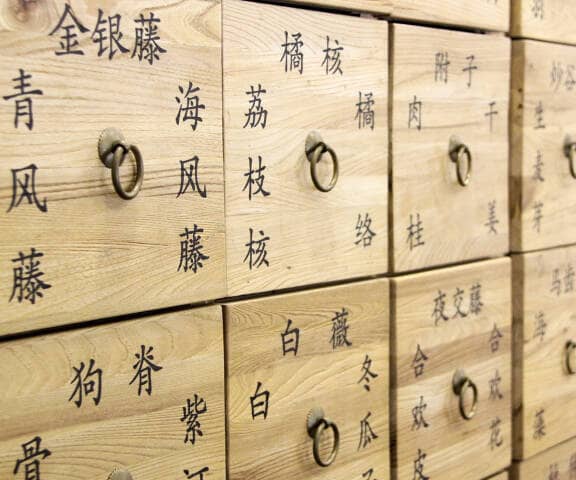 金银藤
青风藤
海风藤
橘核
荔枝核
橘络
附子
肉桂
干姜
炒谷
生麦芽
狗脊
骨
紫
白薇
白
冬瓜
夜交藤
合欢皮
合欢花
马齿
海藻